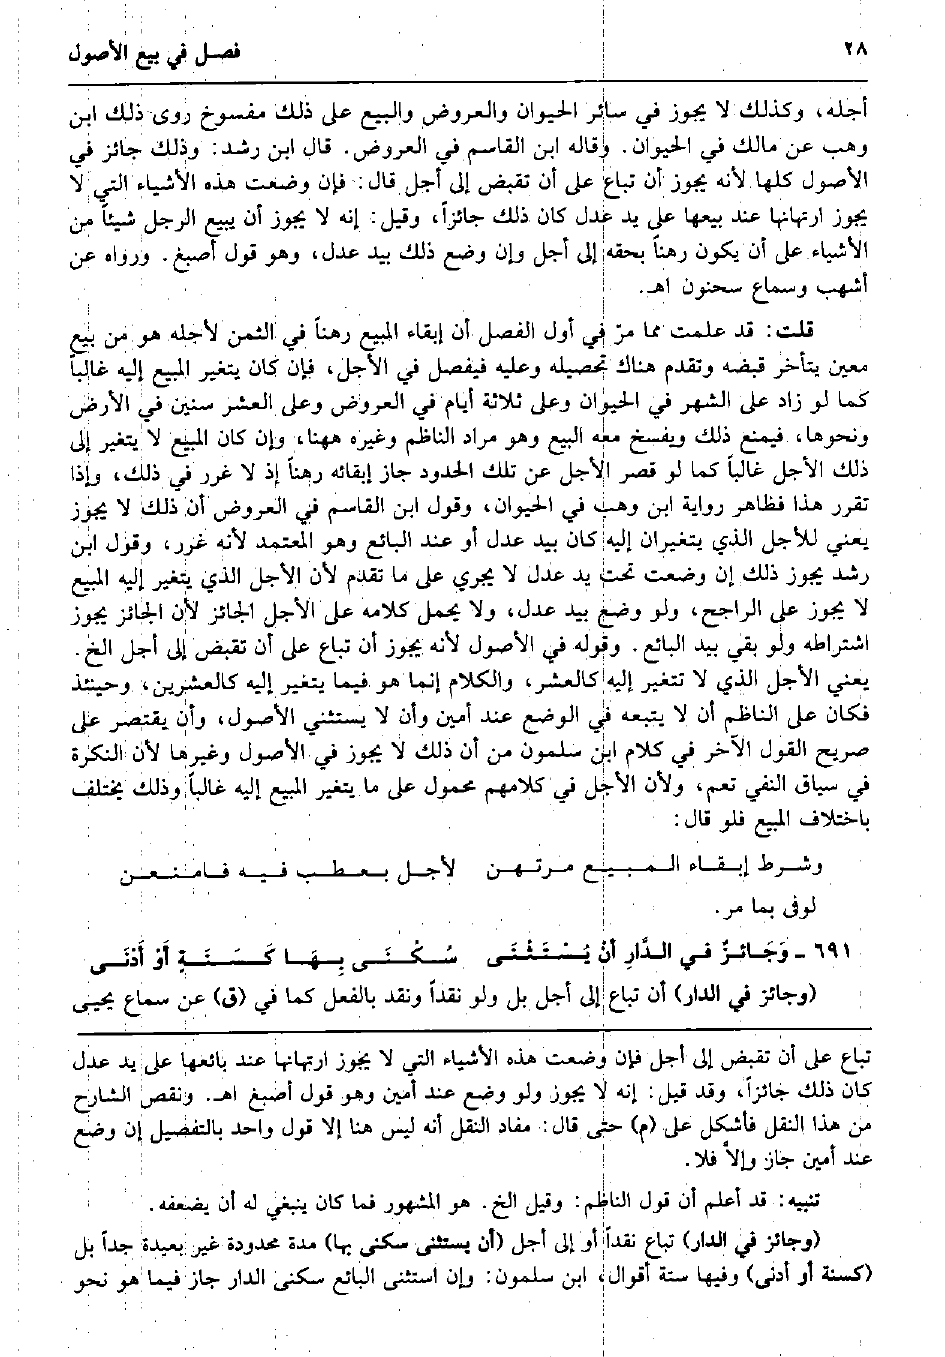 ٢٨ فصل في بيع الأصول
أجله، وكذلك لا يجوز في سائر الحيوان والعروض والبيع على ذلك مفسوخ روى ذلك ابن
وهب عن مالك في الحيوان. وقاله ابن القاسم في العروض. قال ابن رشد: وذلك جائز في
الأصول كلها لأنه يجوز أن تباع على أن تقبض إلى أجل قال: فإن وضعت هذه الأشياء التي لا
يجوز ارتهانها عند بيعها على يد عدل كان ذلك جائزاً، وقيل: إنه لا يجوز أن يبيع الرجل شيئاً من
الأشياء على أن يكون رهناً بحقه إلى أجل وإن وضع ذلك بيد عدل، وهو قول أصبغ. ورواه عن
أشهب وسماع سحنون اهـ.
قلت: قد علمت مما مرّ في أول الفصل أن إبقاء المبيع رهناً في الثمن لأجله هو من بيع
معين يتأخر قبضه وتقدم هناك تحصيله وعليه فيفصل في الأجل، فإن كان يتغير المبيع إليه غالباً
كما لو زاد على الشهر في الحيوان وعلى ثلاثة أيام في العروض وعلى العشر سنين في الأرض
ونحوها، فيمنع ذلك ويفسخ معه البيع وهو مراد الناظم وغيره ههنا، وإن كان المبيع لا يتغير إلى
ذلك الأجل غالباً كما لو قصر الأجل عن تلك الحدود جاز إبقائه رهناً إذ لا غرر في ذلك، وإذا
تقرر هذا فظاهر رواية ابن وهب في الحيوان، وقول ابن القاسم في العروض أن ذلك لا يجوز
يعني للأجل الذي يتغيران إليه كان بيد عدل أو عند البائع وهو المعتمد لأنه غرر، وقول ابن
رشد يجوز ذلك إن وضعت تحت يد عدل لا يجري على ما تقدم لأن الأجل الذي يتغير إليه المبيع
لا يجوز على الراجح، ولو وضع بيد عدل، ولا يحمل كلامه على الأجل الجائز لأن الجائز يجوز
اشتراطه ولو بقي بيد البائع. وقوله في الأصول لأنه يجوز أن تباع على أن تقبض إلى أجل الخ.
يعني الأجل الذي لا تتغير إليه كالعشر، والكلام إنما هو فيما يتغير إليه كالعشرين، وحينئذ
فكان على الناظم أن لا يتبعه في الوضع عند أمين وأن لا يستثني الأصول، وأن يقتصر على
صريح القول الآخر في كلام ابن سلمون من أن ذلك لا يجوز في الأصول وغيرها لأن النكرة
في سياق النفي تعم، ولأن الأجل في كلامهم محمول على ما يتغير المبيع إليه غالباً وذلك يختلف
باختلاف المبيع فلو قال:
وشرط إبقاء المبيع مرتهن لأجل يعطب فيه فامنعن
لوفى بما مر.
٦٩١ - وَجَائِزٌ في الدَّارِ أنْ يُسْتَثْنَى سُكْنَى بِهَا كَسَنَةٍ أوْ أدْنَى
(وجائز في الدار) أن تباع إلى أجل بل ولو نقداً ونقد بالفعل كما في (ق) عن سماع يحيى
تباع على أن تقبض إلى أجل فإن وضعت هذه الأشياء التي لا يجوز ارتهانها عند بائعها على يد عدل
كان ذلك جائزاً، وقد قيل: إنه لا يجوز ولو وضع عند أمين وهو قول أصبغ اهـ. ونقص الشارح
من هذا النقل فأشكل على (م) حتى قال: مفاد النقل أنه ليس هنا إلا قول واحد بالتفصيل إن وضع
عند أمين جاز وإلاّ فلا.
تنبيه: قد أعلم أن قول الناظم: وقيل الخ. هو المشهور فما كان ينبغي له أن يضعفه.
(وجائز في الدار) تباع نقداً أو إلى أجل (أن يستثنى سكنى بها) مدة محدودة غير بعيدة جداً بل
(كسنة أو أدنى) وفيها ستة أقوال، ابن سلمون: وإن استثنى البائع سكنى الدار جاز فيما هو نحو